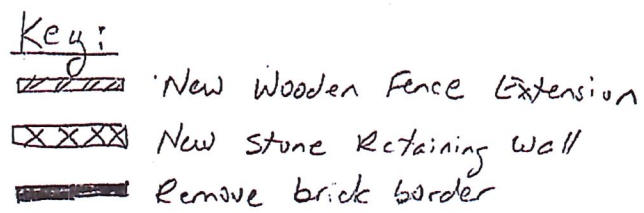 Key:
New Wooden Fence Extension
New Stone Retaining Wall
Remove brick border